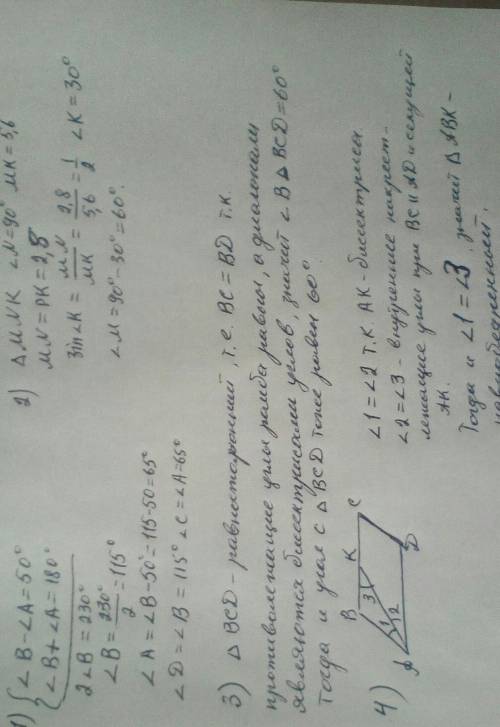 1) { ∠B - ∠A = 50°
∠B + ∠A = 180°
2∠B = 230°
∠B = 230° / 2 = 115°
∠A = ∠B - 50° = 115 - 50 = 65°
∠D = ∠B = 115° ∠C = ∠A = 65°
2) △MNK ∠N = 90° MK = 5,6
MN = PK = 2,8
Sin∠K = MN / MK = 2,8 / 5,6 = 1/2 ∠K = 30°
∠M = 90° - 30° = 60°.
3) △BCD - равносторонний, т.е. BC = BD т.к.
противолежащие углы ромба равны, а диагонали
являются биссектрисами углов, значит ∠B △BCD = 60°
Тогда и угол C △BCD тоже равен 60°.
4) B K C
3
1 2
A D
∠1 = ∠2 т.к AK - биссектрисы.
∠2 = ∠3 - внутренние накрест-
лежащие углы при BC || AD и секущей
AK.
Тогда и ∠1 = ∠3, значит △ABK -
равнобедренный.